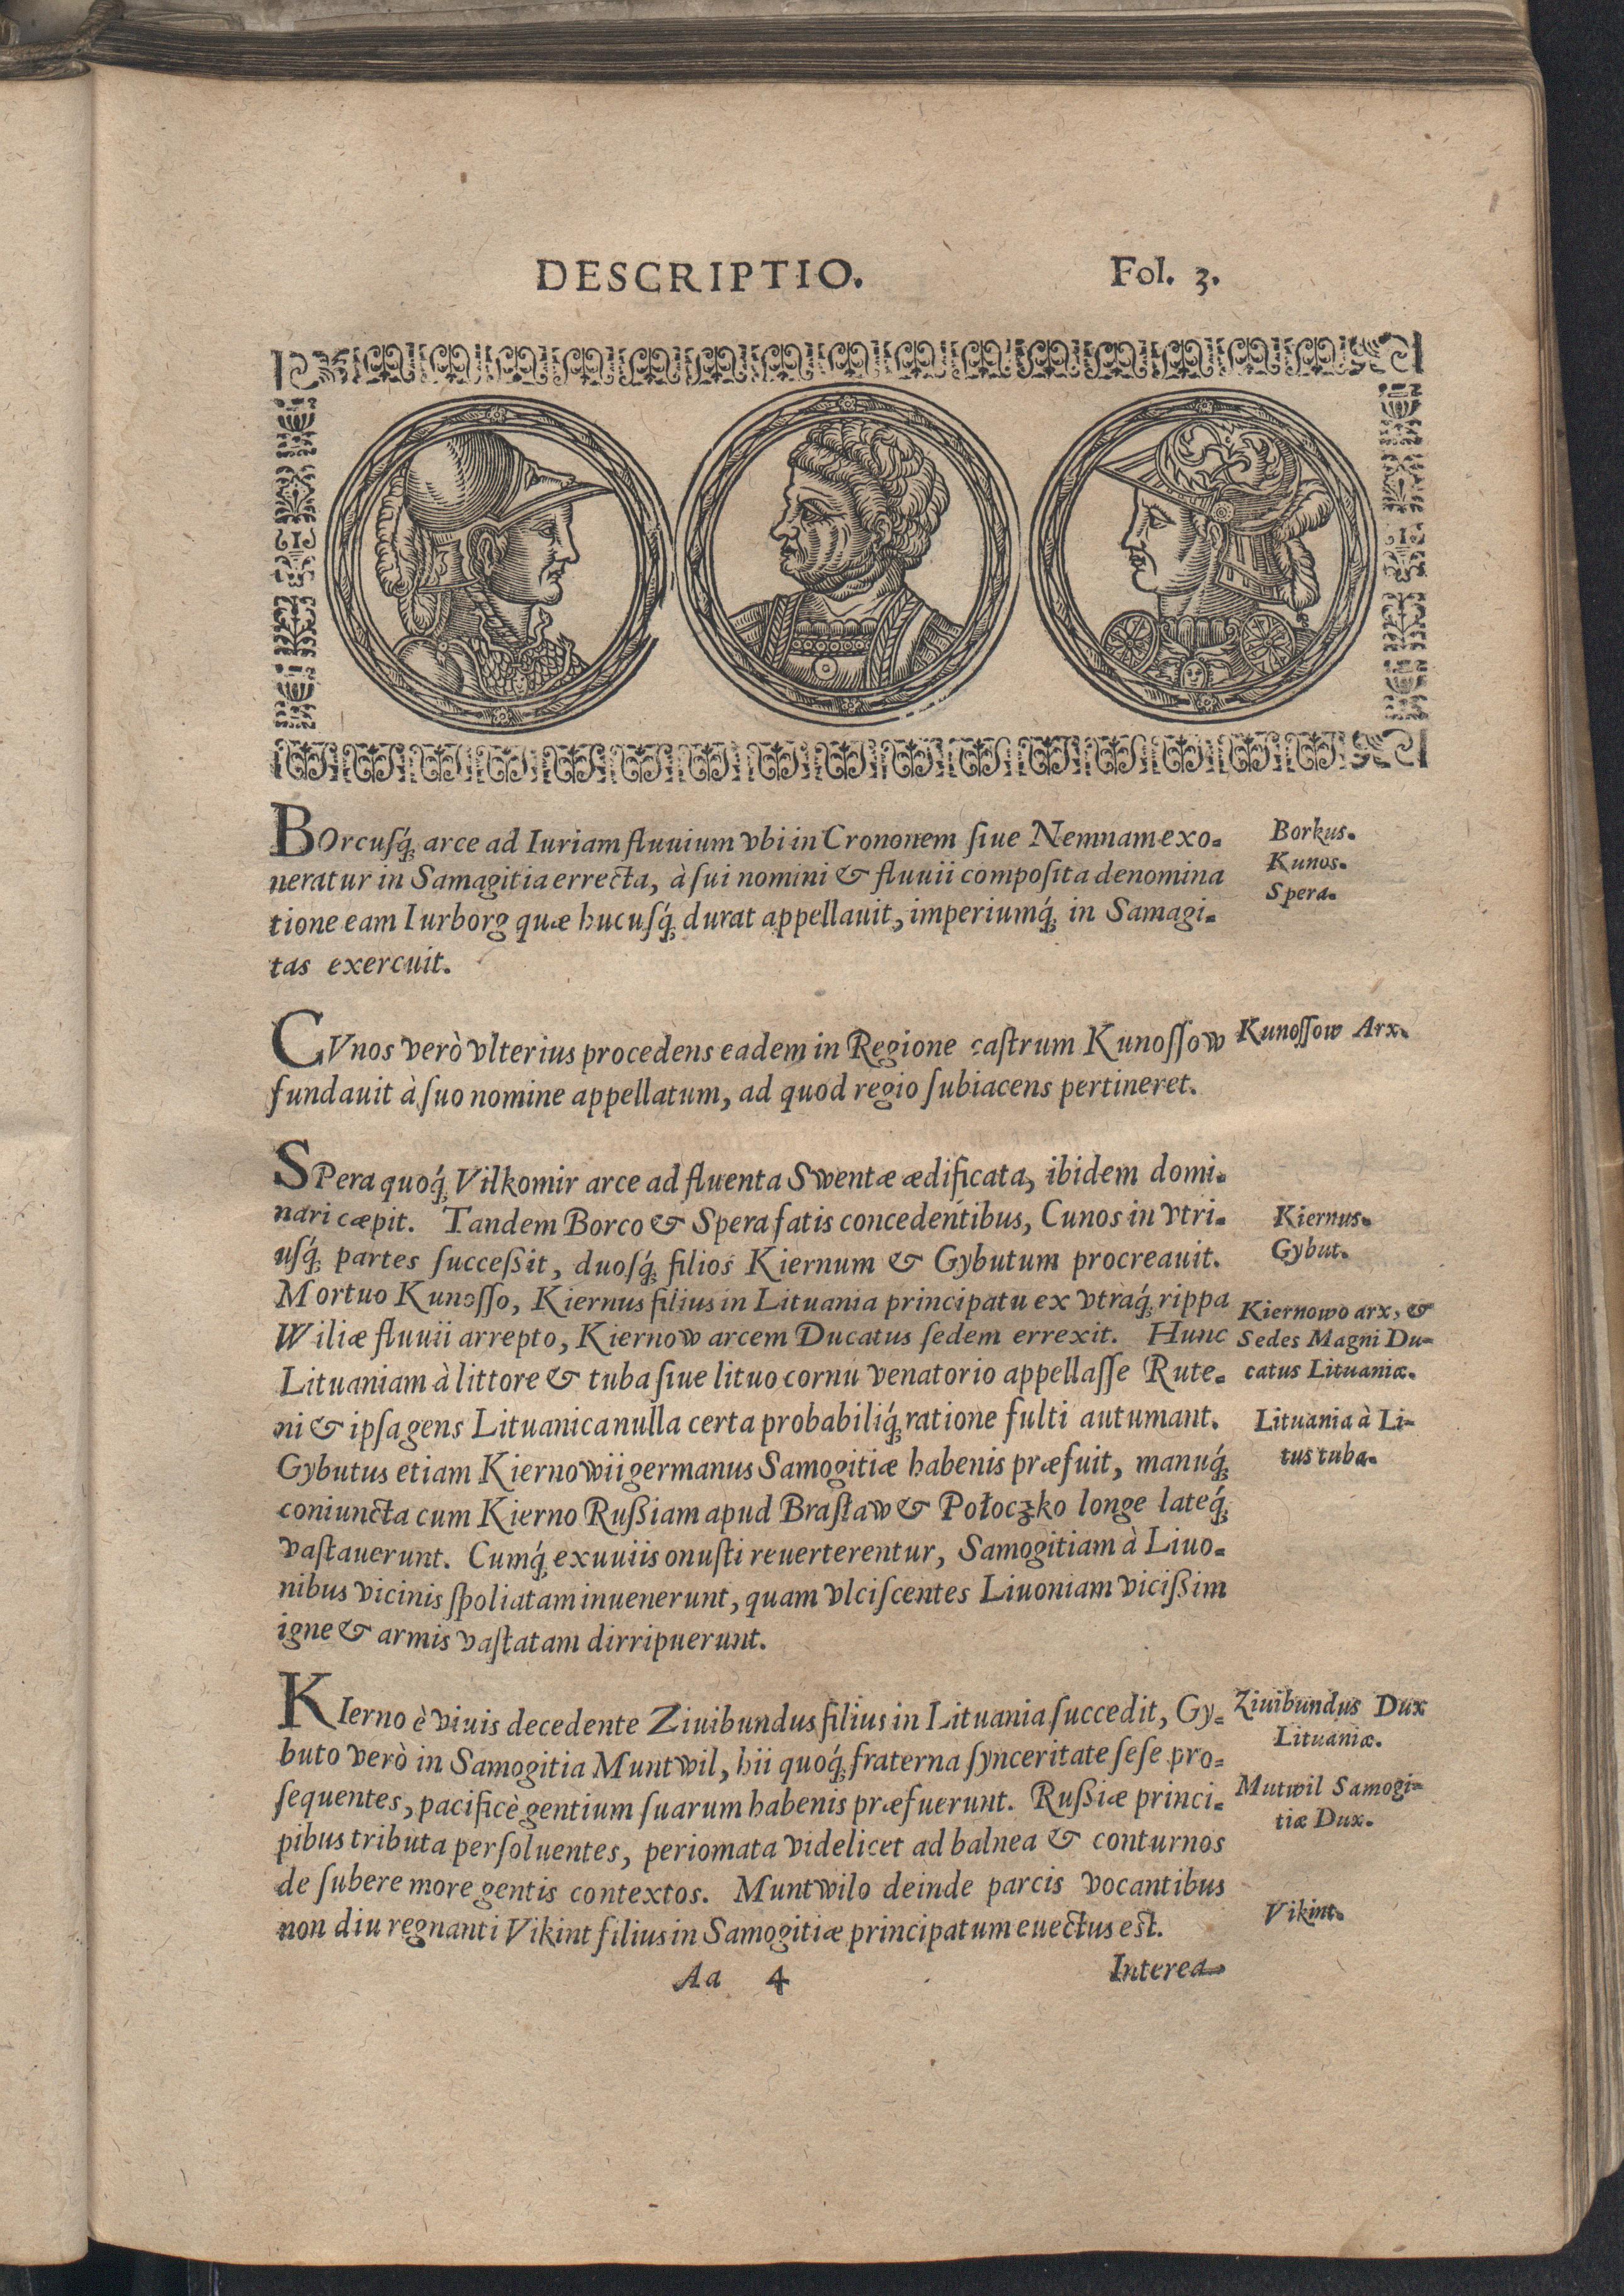 DESCRIPTIO. Fol. 3.
BOrcusq́; arce ad Iuriam fluuium vbi in Crononem ſiue Nemnam exo-
neratur in Samagitia errecta, à ſui nomini & fluuii compoſita denomina
tione eam Iurborg quæ hucuſq́; durat appellauit, imperiumq́; in Samagi-
tas exercuit.
Borkus.
Kunos.
Spera.
CVnos verò vlterius procedens eadem in Regione caſtrum Kunoſſow
fundauit à ſuo nomine appellatum, ad quod regio ſubiacens pertineret.
Kunoſſow Arx.
SPera quoq́; Vilkomir arce ad fluenta Swentæ ædificata, ibidem domi-
nari cæpit. Tandem Borco & Spera fatis concedentibus, Cunos in vtri-
uſq́; partes ſucceßit, duoſq́; filios Kiernum & Gybutum procreauit.
Mortuo Kunoſſo, Kiernus filius in Lituania principatu ex vtraq́; rippa
Wiliæ fluuii arrepto, Kiernow arcem Ducatus ſedem errexit. Hunc
Lituaniam à littore & tuba ſiue lituo cornu venatorio appellaſſe Rute-
ni & ipſa gens Lituanica nulla certa probabiliq́; ratione fulti autumant.
Gybutus etiam Kiernowii germanus Samogitiæ habenis præfuit, manuq́;
coniuncta cum Kierno Rußiam apud Braſław & Połoczko longe lateq́;
vaſtauerunt. Cumq́; exuuiis onuſti reuerterentur, Samogitiam à Liuo-
nibus vicinis ſpoliatam inuenerunt, quam vlciſcentes Liuoniam vicißim
igne & armis vaſtatam dirripuerunt.
Kiernus.
Gybut.
Kiernowo arx, &
Sedes Magni Du-
catus Lituaniæ.
Lituania à Li-
tus tuba.
KIerno è viuis decedente Ziuibundus filius in Lituania ſuccedit, Gy-
buto verò in Samogitia Muntwil, hii quoq́; fraterna ſynceritate ſeſe pro-
ſequentes, pacificè gentium ſuarum habenis præfuerunt. Rußiæ princi-
pibus tributa perſoluentes, periomata videlicet ad balnea & conturnos
de ſubere more gentis contextos. Muntwilo deinde parcis vocantibus
non diu regnanti Vikint filius in Samogitiæ principatum euectus eſt.
Ziuibundus Dux
Lituaniæ.
Mutwil Samogi-
tiæ Dux.
Vikint.
Aa 4 Interea